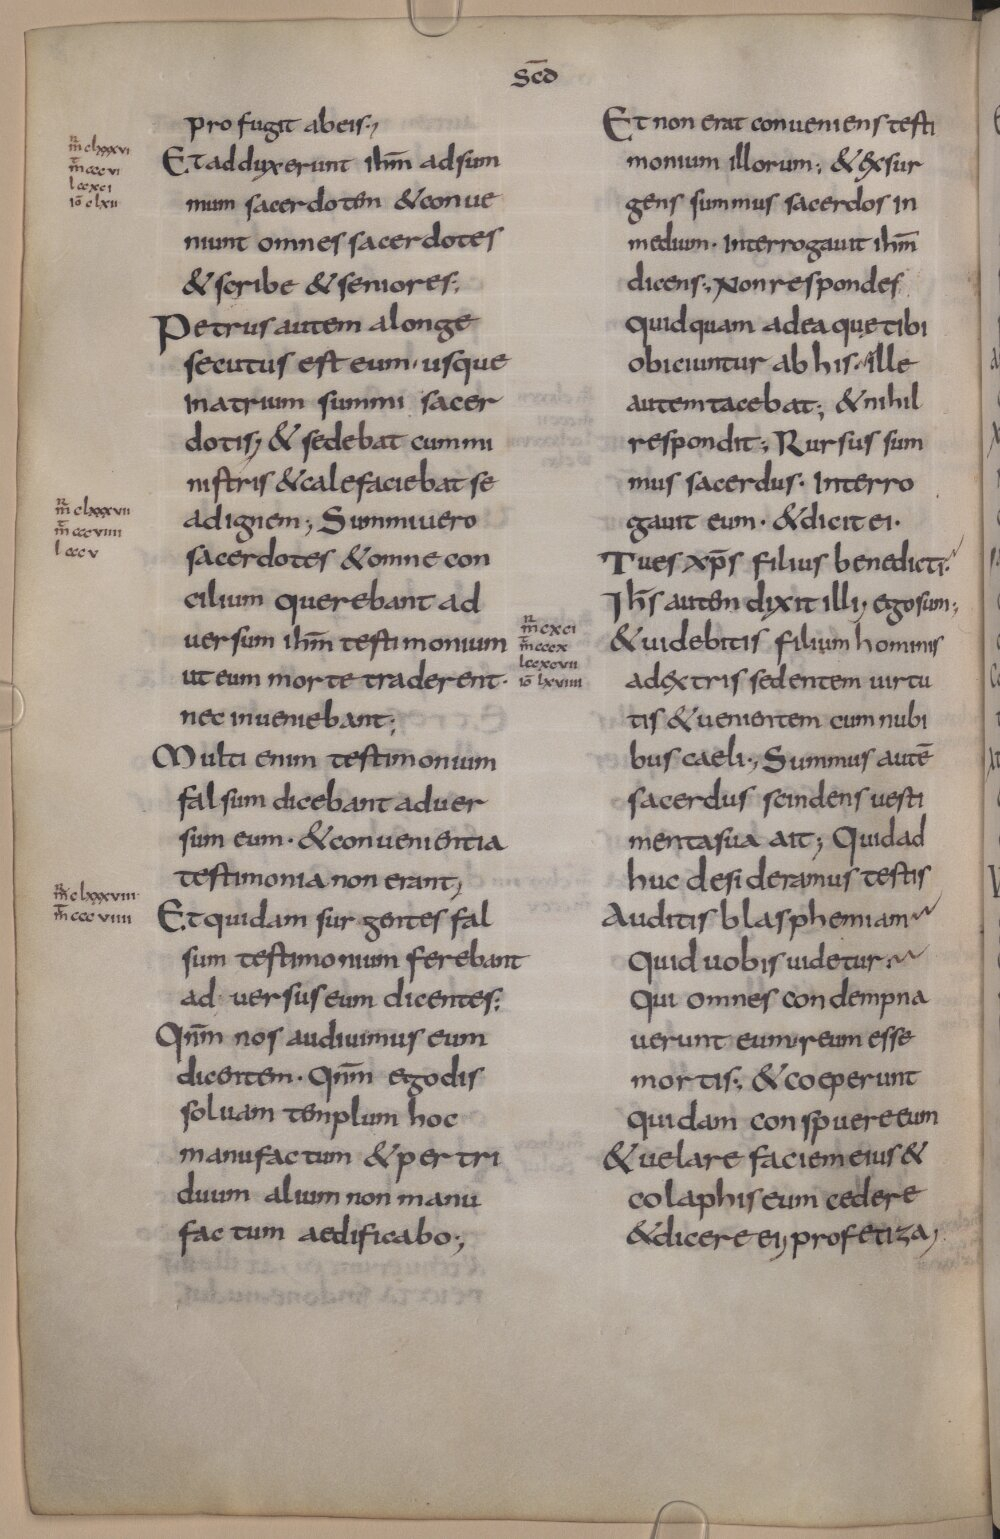 sc̄d
profugit abeis;
Et adduxerunt ih̄m adsum
mum sacerdotem & conue
niunt omnes sacerdotes
& scribe & seniores;
Petrus autem alonge
secutus est eum · usque
inatrium summi sacer
dotis; & sedebat cummi
nistris & calefaciebat se
adignem; Summi uero
sacerdotes & omne con
cilium querebant ad
uersum ih̄m testimonium
ut eum morte traderent ·
nec inueniebant;
Multi enim testimonium
falsum dicebant aduer
sum eum · & conuenientia
testimonia non erant;
Et quidam surgentes fal
sum testimonium ferebant
aduersus eum dicentes;
Qnm̄ nos audiuimus eum
dicentem · Qnm̄ ego dis
soluam templum hoc
manufactum & per tri
duum alium non manu
factum aedificabo;
m̄ clxxxvi
m̄ cccvi
l ccxci
iō clxii
m̄ clxxxvii
m̄ cccviiii
l cccv
m̄ clxxxviii
m̄ cccviiii
Et non erat conueniens testi
monium illorum; & exsur
gens summus sacerdos in
medium · interrogauit ih̄m
dicens; Non respondes
quidquam adea que tibi
obiciuntur ab his · ille
autem tacebat; & nihil
respondit; Rursus sum
mus sacerdus · interro
gauit eum · & dicit ei ·
Tu es xp̄s filius benedicti
Ih̄s autem dixit illi; ego sum;
& uidebitis filium hominis
adextris sedentem uirtu
tis & uenientem cum nubi
bus caeli; Summus autē
sacerdus scindens uesti
menta sua ait; Quid ad
huc desideramus testis
Auditis blasphemiam
Quid uobis uidetur
Qui omnes condempna
uerunt eum reum esse
mortis; & coeperunt
quidam conspuere eum
& uelare faciem eius &
colaphis eum cedere
& dicere ei; profetiza;
m̄ cxci
m̄ cccx
l ccxcvii
iō lxviiii